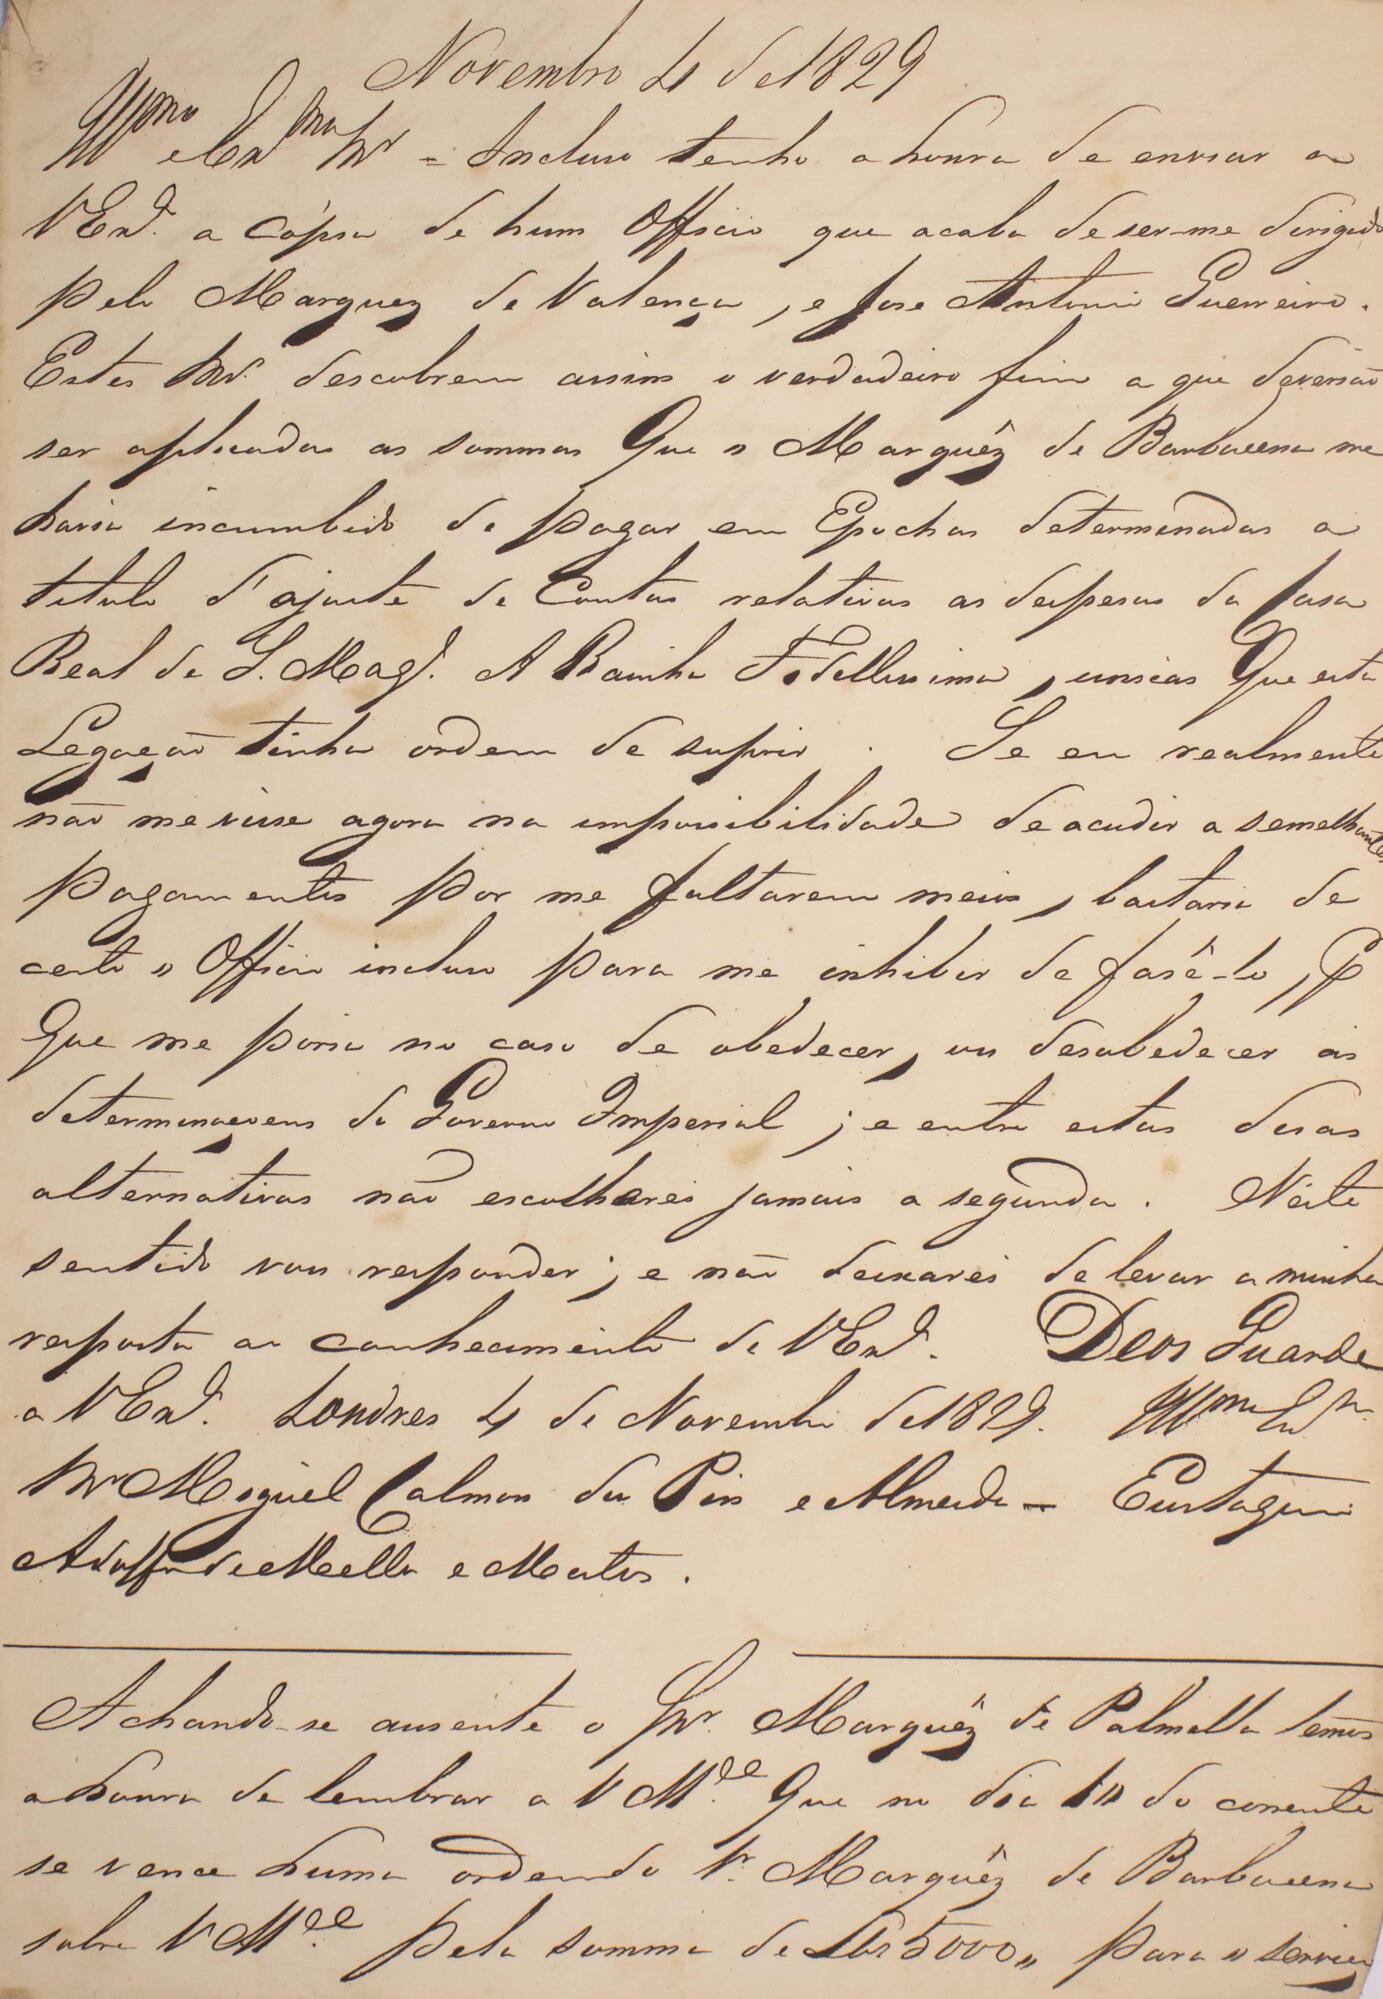 Novembro 4 de 1829
Illmo e Exmo Snr = Incluso tenho a honra de enviar a
V Exa. a cópia de hum Officio que acaba de ser-me dirigido
pelo Marquez de Valença, e Jose Antonio Guerreiro.
Estes Snrs. descobrem assim o verdadeiro fim a que deverião
ser aplicadas as sommas Que o Marquêz de Barbacena me
havia incumbido de pagar em Epochas determinadas a
titulo d'ajuste de Contas relativas as despesas da Casa
Real de S. Magde. A Rainha Fidellissima, unicas Que esta
Legação tinha ordem de suprir. Se eu realmente
não me visse agora na impossibilidade de acudir a semelhantes
pagamentos por me faltarem meios, bastaria de
certo o Officio incluso para me inhibir de fasê-lo, p
Que me poria no caso de obedecer, ou desobedecer as
determinaçoens do Governo Imperial; e entre estas duas
alternativas não escolherei jamais a segunda. Néste
sentido vou responder; e não deixarei de levar a minha
resposta ao conhecimento de V Exa. Deos Guarde
a V Exa. Londres 4 de Novembro de 1829. Illmo Exmo
Snr Miguel Calmon du Pin e Almeida = Eustaquio
Adolfo de Mello e Mattos.
Achando-se ausente o Snr. Marquêz de Palmella temos
a honra de lembrar a V Mce. Que no dia 10 do corrente
se vence huma ordem do Sr. Marquêz de Barbacena
sobre V Mce. pela somma de Lbs 5000,, para o serviço